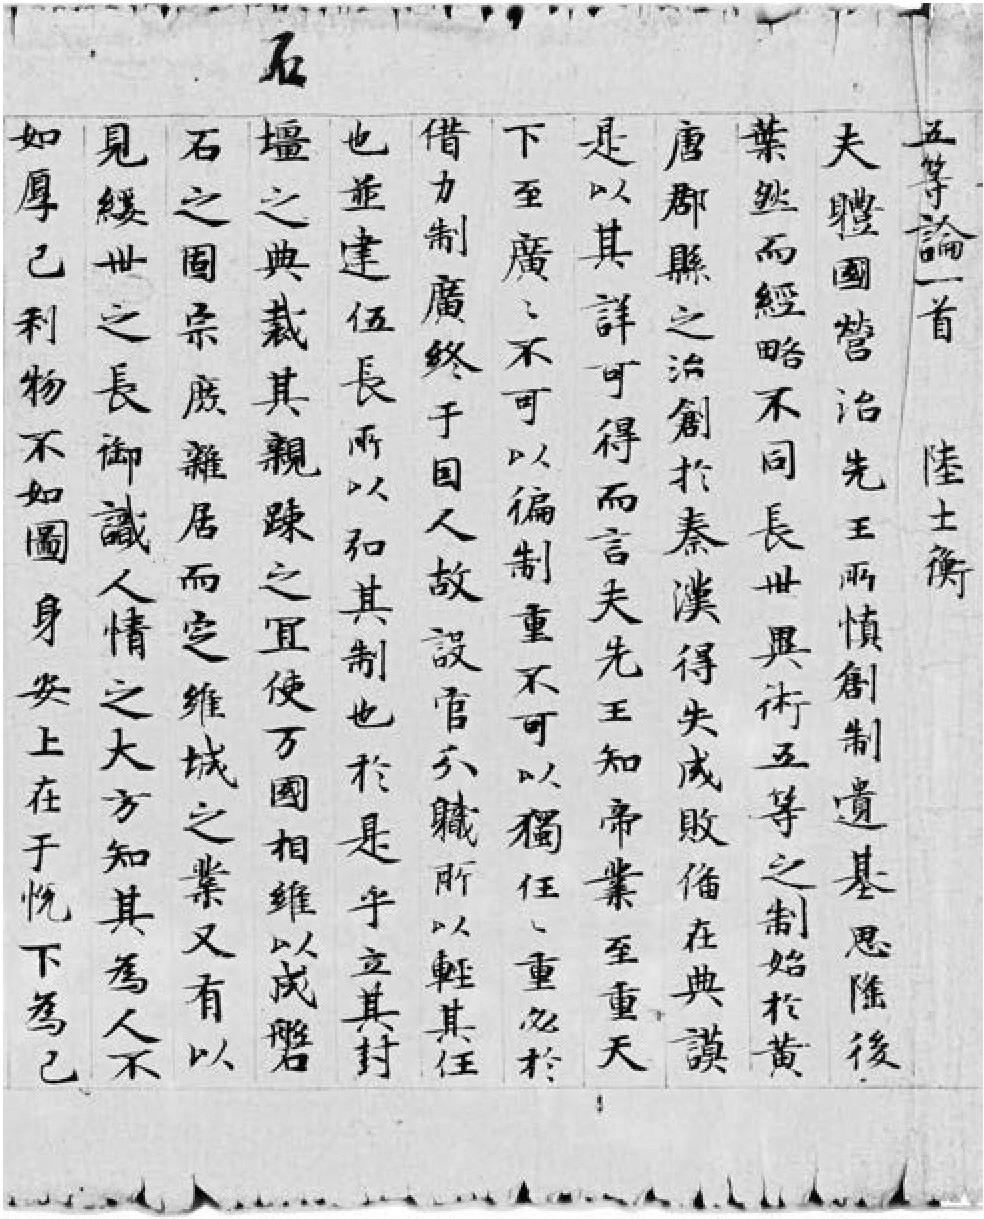 石
五等論一首 陸士衡
夫體國營治先王所慎創制遺基思隆後
葉然而經略不同長世異術五等之制始於黃
唐郡縣之治創於秦漢得失成敗俻在典謨
是以其詳可得而言夫先王知帝業至重天
下至廣〻不可以徧制重不可以獨任〻重必於
借力制廣終于因人故設官分職所以輕其任
也並建伍長所以弘其制也於是乎立其封
壃之典裁其親踈之冝使万國相維以成磐
石之固宗庶雜居而定維城之業又有以
見綏世之長御識人情之大方知其為人不
如厚己利物不如圖身安上在于悅下為己